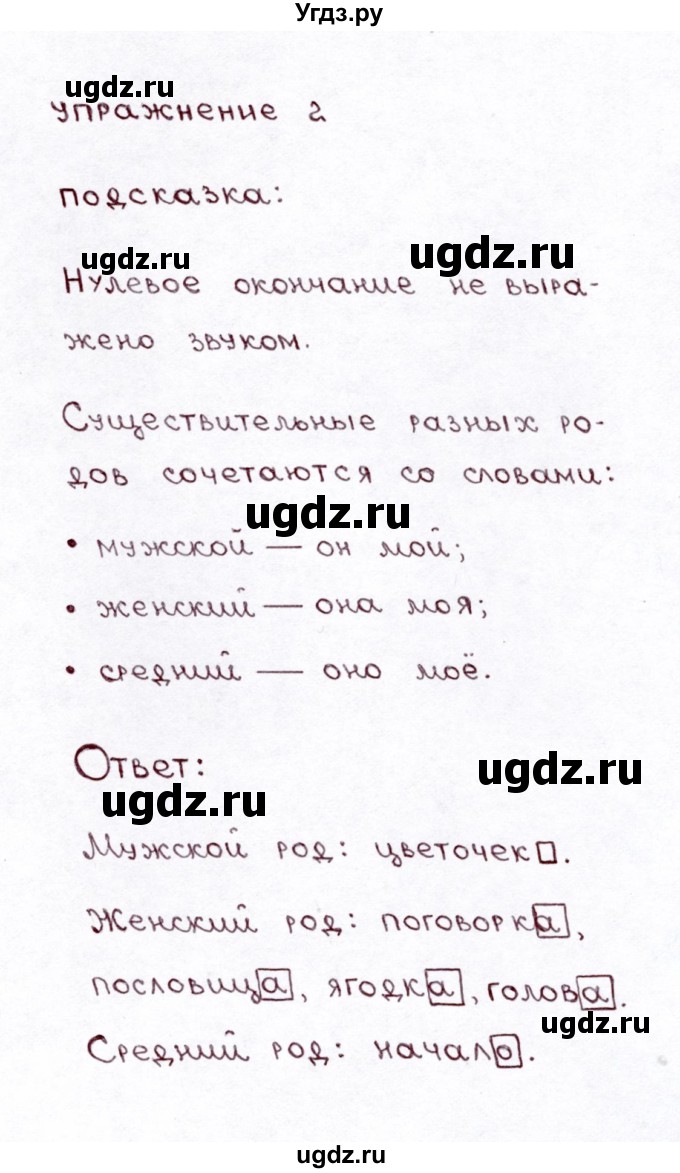 Угдз.ру
ugdz.ru
упражнение 2
подсказка:
ugdz.ru
ugdz.ru
Нулевое окончание не выра-
жено звуком.
Существительные разных ро-
дов сочетаются со словами:
ugdz.ru
• мужской — он мой;
• женский — она моя;
• средний — оно моё.
Ответ:
ugdz.ru
ugdz.ru
Мужской род: цветочек□.
Женский род: поговорка,
пословица, ягодка, голова.
ugdz.ru
Средний род: начало.
ugdz.ru